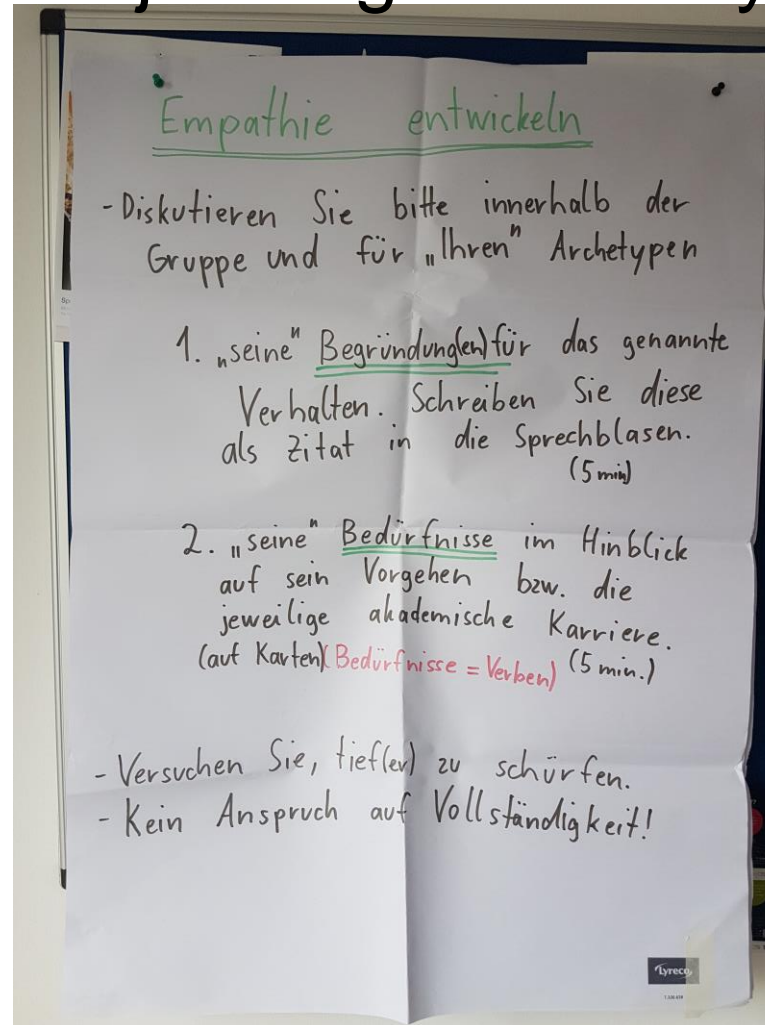 Empathie entwickeln
- Diskutieren Sie bitte innerhalb der
Gruppe und für „Ihren" Archetypen
1. „seine" Begründung(en) für das genannte
Verhalten. Schreiben Sie diese
als Zitat in die Sprechblasen.
(5 min)
2. „seine" Bedürfnisse im Hinblick
auf sein Vorgehen bzw. die
jeweilige akademische Karriere.
(auf Karten) (Bedürfnisse = Verben) (5 min.)
- Versuchen Sie, tief(er) zu schürfen.
- Kein Anspruch auf Vollständigkeit!
Lyreco